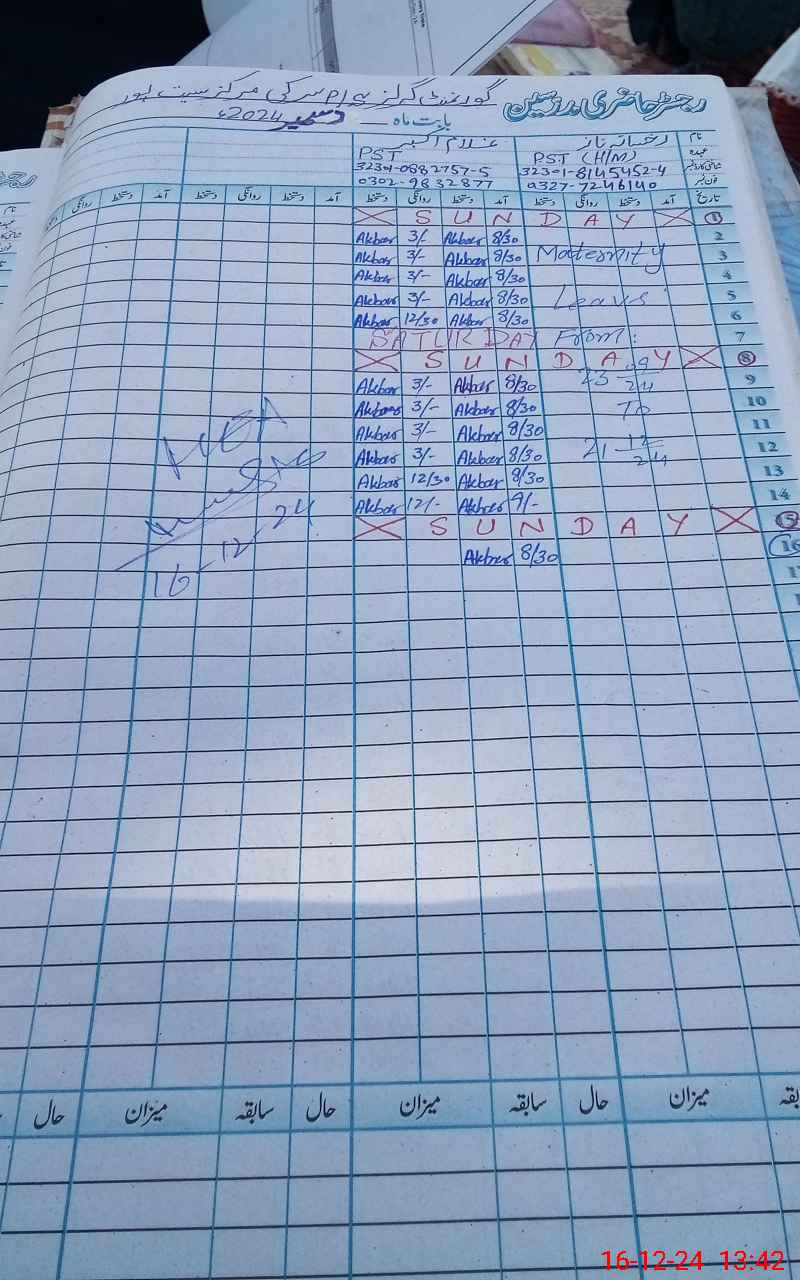 رجسٹر حاضری مدرسین گورنمنٹ گرلز پرا سرکی مرکز سیت پور
بابت ماہ دسمبر 2024ء
نام رخسانہ ناز غلام اکبر
عہدہ PST (H/M) PST
شناختی کارڈ نمبر 32301-8145452-4 32301-0882757-5
فون نمبر 0327-7246140 0302-9832877
تاریخ آمد دستخط روانگی دستخط آمد دستخط روانگی دستخط آمد دستخط روانگی دستخط آمد دستخط روانگی دستخط
1 S U N D A Y
2 8/30 Akbar 3/- Akbar
3 Maternity 8/30 Akbar 3/- Akbar
4 8/30 Akbar 3/- Akbar
5 Leave 8/30 Akbar 3/- Akbar
6 8/30 Akbar 12/30 Akbar
7 From: SATURDAY
8 S U N D A Y
9 8/30 Akbar 3/- Akbar
10 To 8/30 Akbar 3/- Akbar
11 8/30 Akbar 3/- Akbar
12 21 12/24 8/30 Akbar 3/- Akbar
13 8/30 Akbar 12/30 Akbar
14 9/- Akbar 12/- Akbar
15 S U N D A Y
16 8/30 Akbar
16-12-24
میزان حال سابقہ میزان حال سابقہ میزان حال
16-12-24 13:42